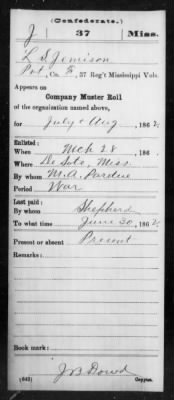 (Confederate.)
J 37 Miss.
L S Jemison
Pvt, Co. E, 37 Reg't Mississippi Vols.
Appears on
Company Muster Roll
of the organization named above,
for July & Aug, 1862.
Enlisted:
When Mch 28, 186 .
Where De Soto, Miss.
By whom M. A. Pardue
Period War
Last paid:
By whom Shepherd
To what time June 30, 1862
Present or absent Present
Remarks:
Book mark:
J B Dowd
(642) Copyist.